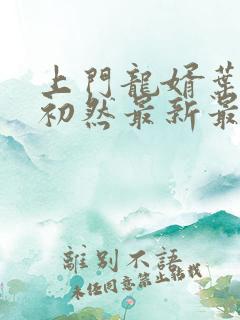 上門龍婿葉
初然最新最
離別不語
未任同意禁止轉載